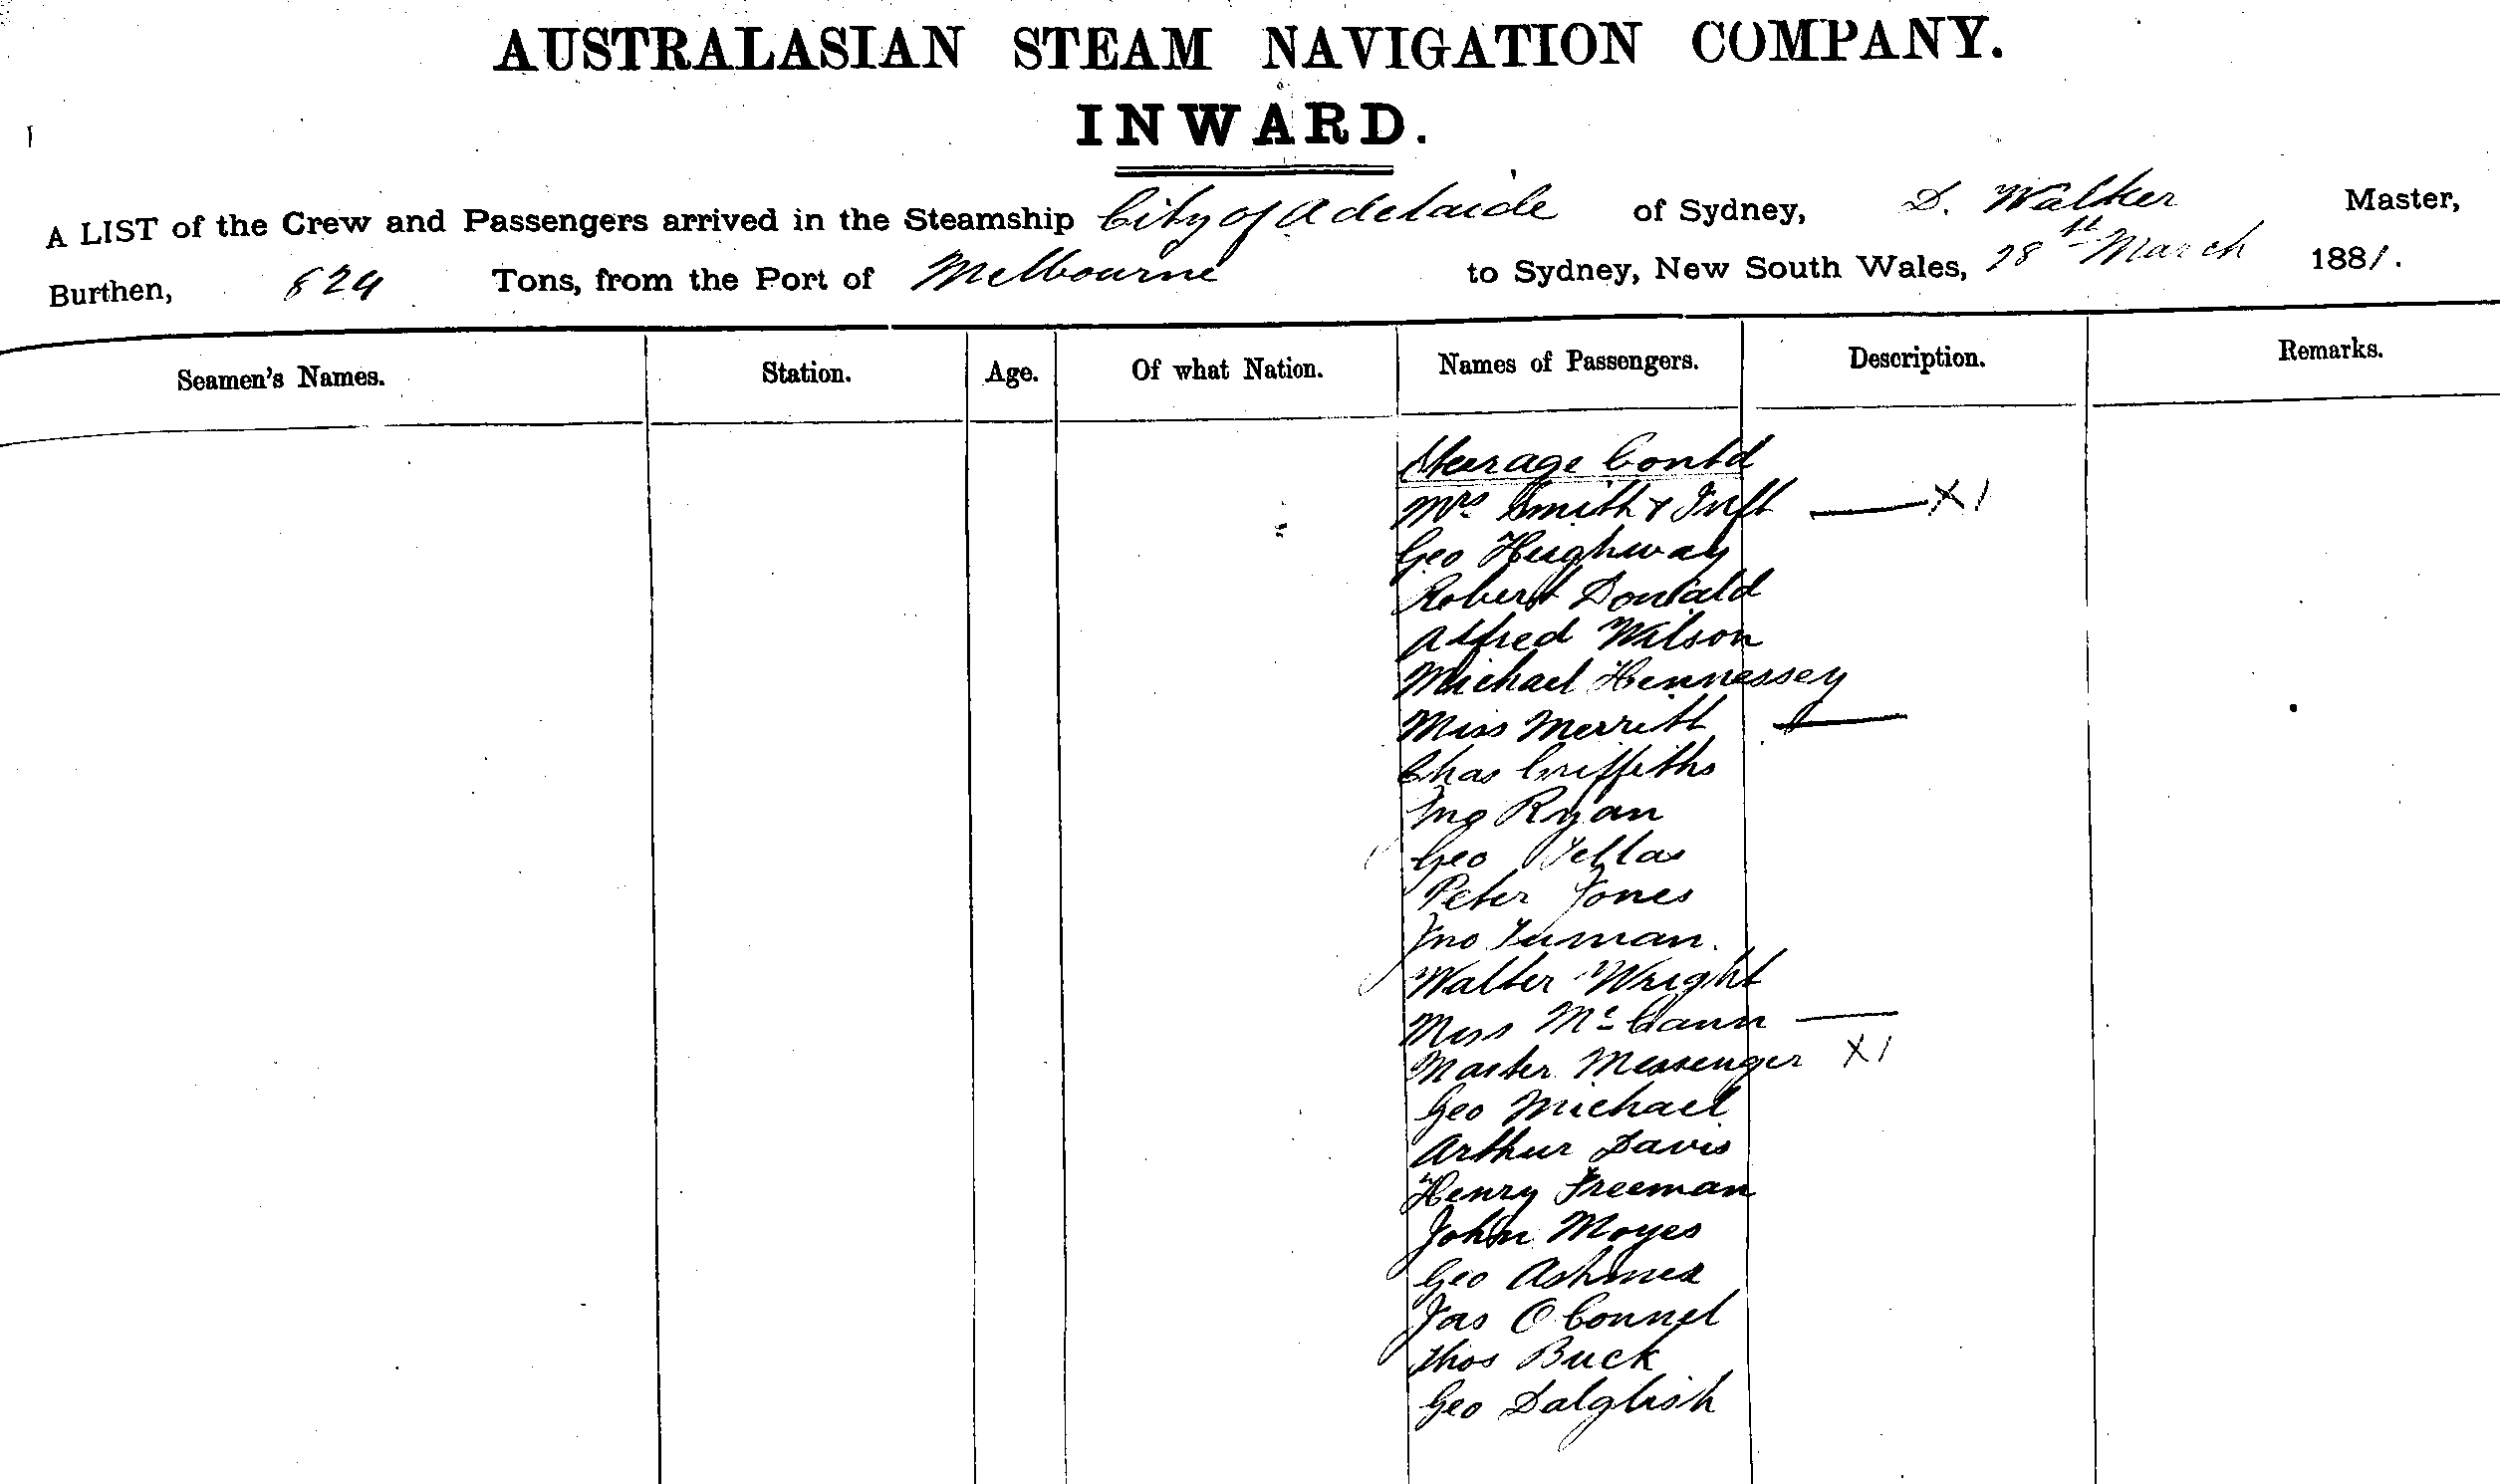 AUSTRALASIAN STEAM NAVIGATION COMPANY.
INWARD.
A LIST of the Crew and Passengers arrived in the Steamship City of Adelaide of Sydney, D. Walker Master,
Burthen, 824 Tons, from the Port of Melbourne to Sydney, New South Wales, 28th March 1881.
Seamen's Names. Station. Age. Of what Nation. Names of Passengers. Description. Remarks.
Steerage Contd
Mrs Smith & Inft — X 1
Geo Hughway
Robert Donald
Alfred Wilson
Michael Hennessey
Miss Merritt —
Chas Griffiths
Jno Ryan
Geo
Peter Jones
Jno
Walter Wright
Miss McCann —
Master Messenger X 1
Geo Michael
Arthur Davis
Henry Freeman
John Moyes
Geo
Jas O Connel
Thos Buck
Geo Dalglish